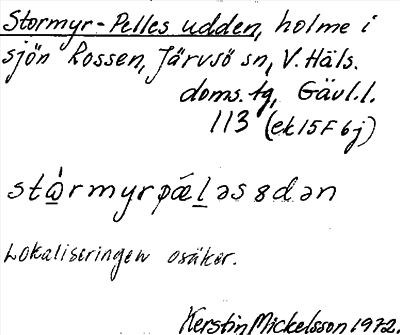 Stormyr-Pelles udden, holme i
sjön Rossen, Järvsö sn, V. Häls.
doms. tg, Gävl. l.
113 (ek 15F 6j)
står̀myrpǽləsɞdən
Lokaliseringen osäker.
Kerstin Mickelsson 1972.